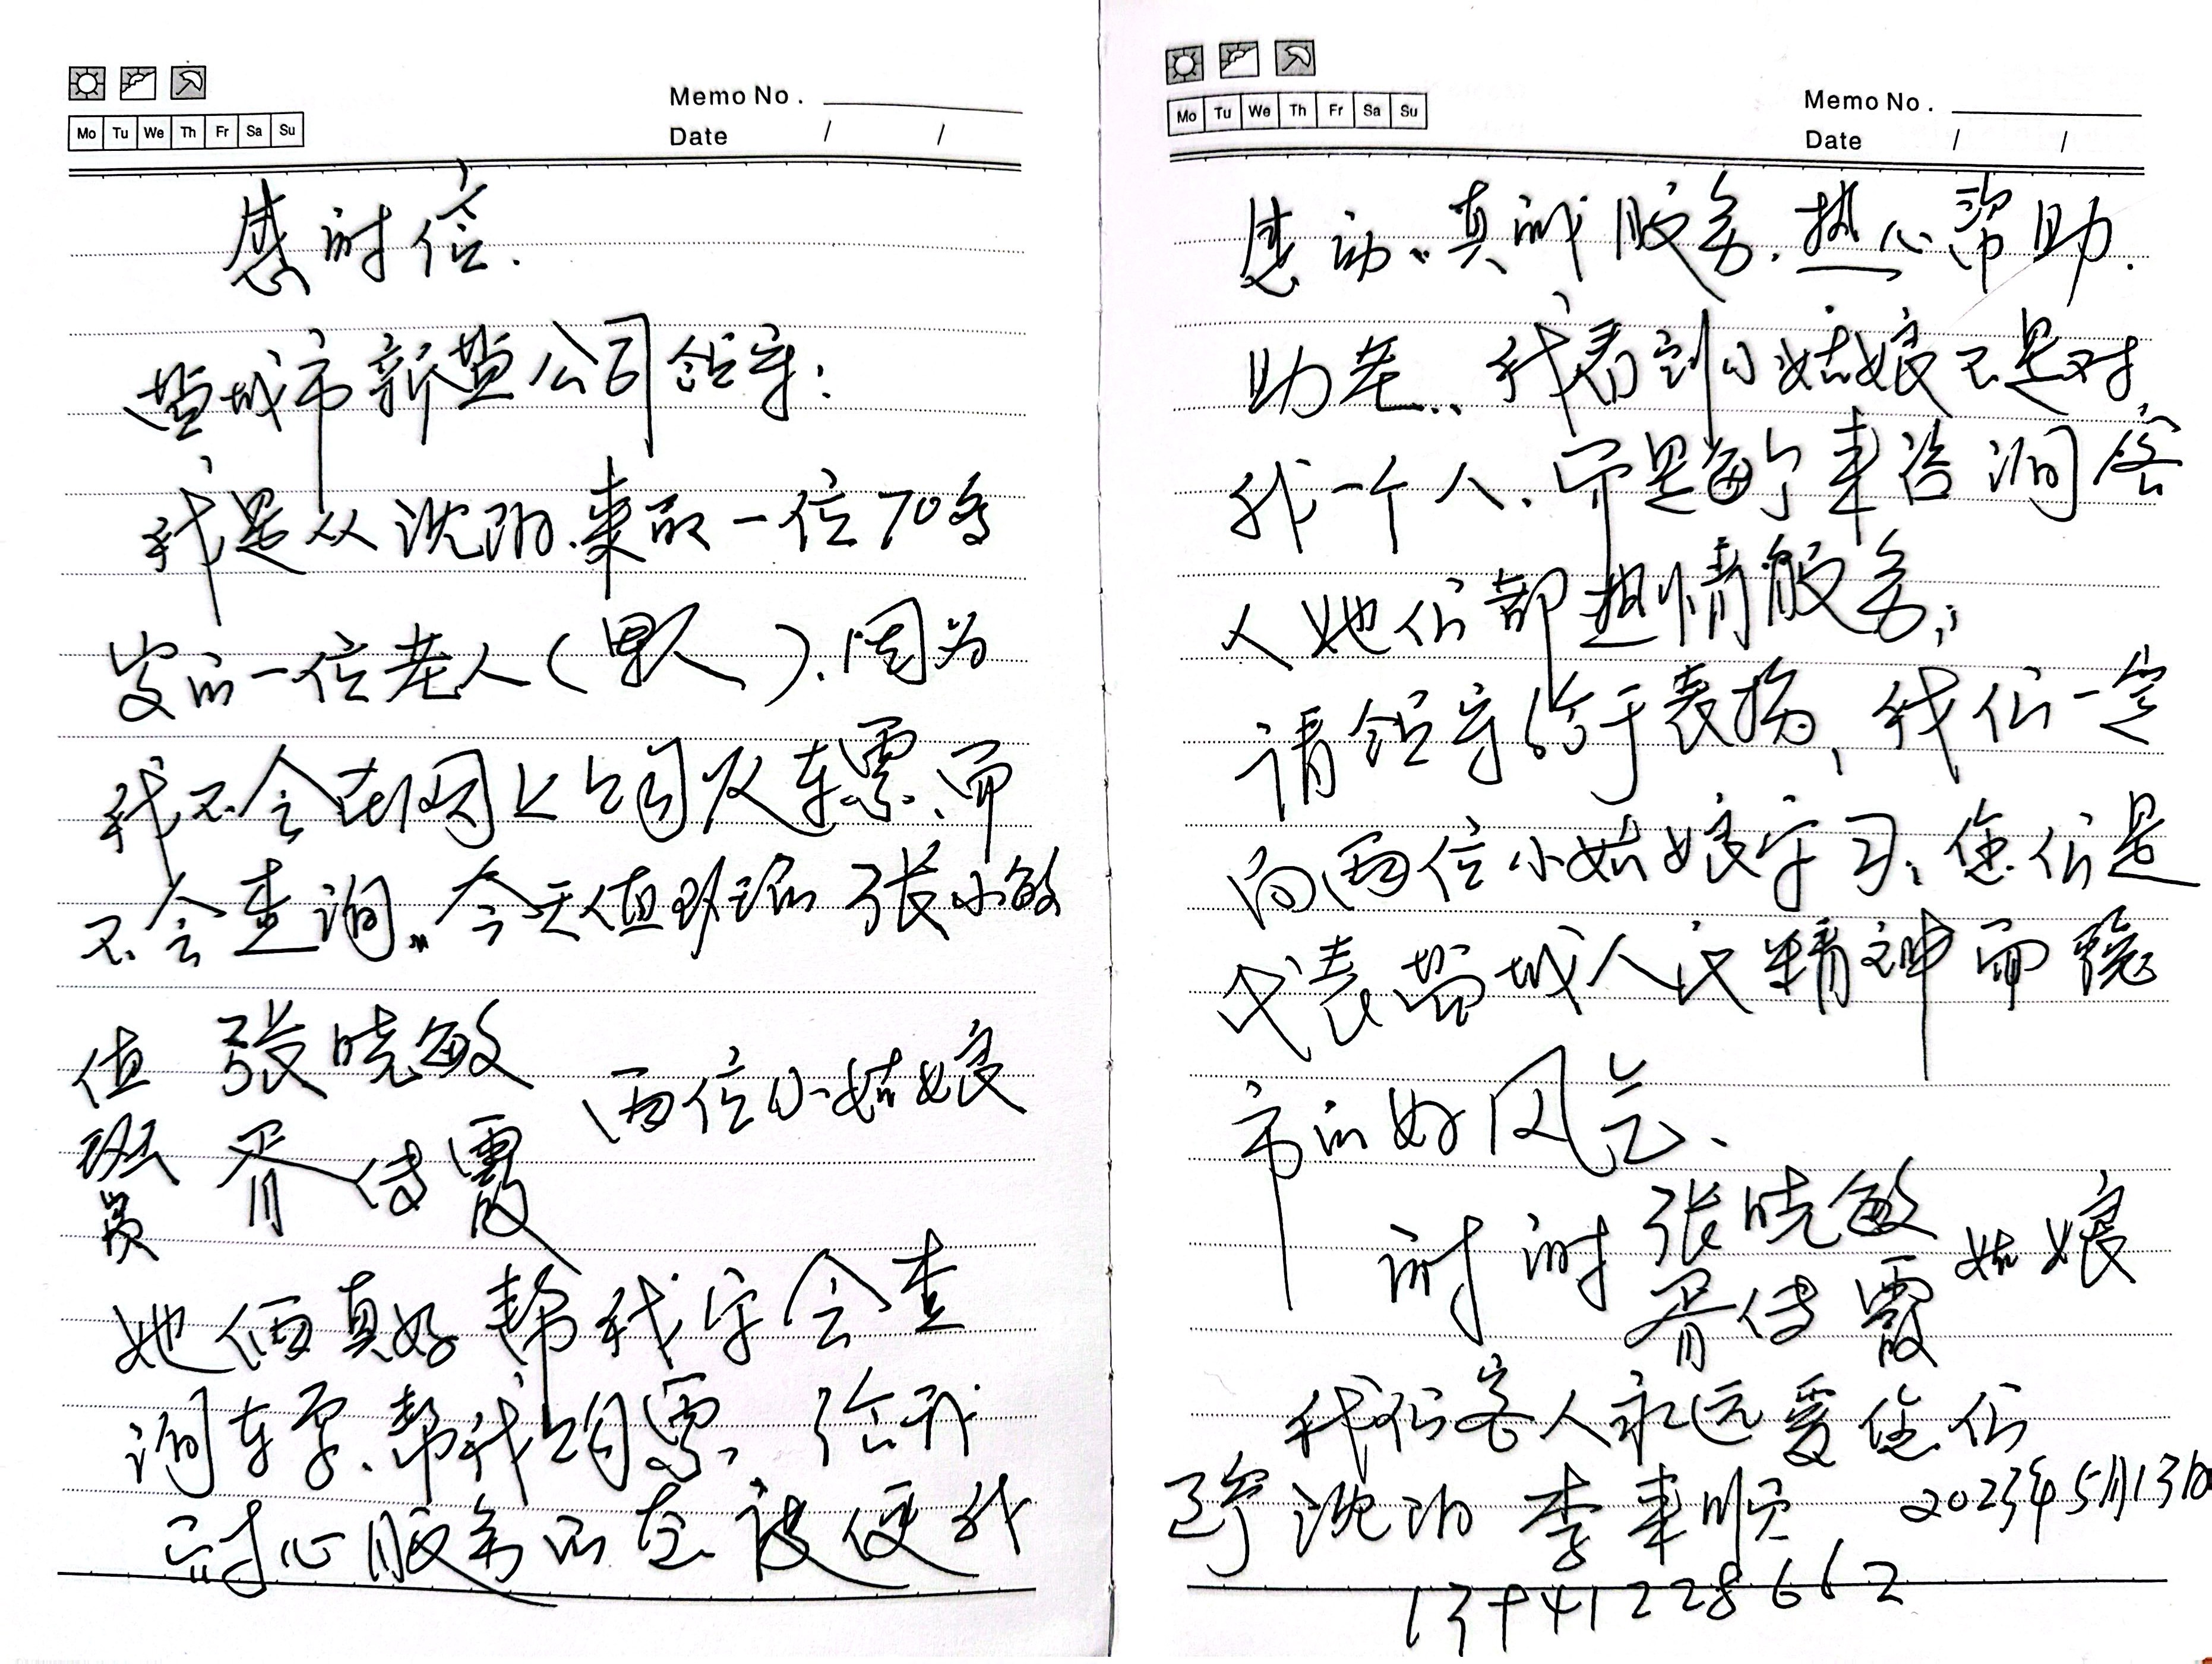 Memo No.
Mo Tu We Th Fr Sa Su
Date / /
感谢信.
盐城市新盐公司领导:
我是从沈阳.来的一位70多
岁的一位老人(男人).因为
我不会在网上购反车票、而
不会查询。今天值班现 张小敏
值班员 张晓敏 两位小姑娘
胥传霞
她俩真好帮我学会查
询车票、帮我购票、给我
耐心服务 我
Memo No.
Mo Tu We Th Fr Sa Su
Date / /
感动、真诚服务.热心帮助.
助老、我看到小姑娘不是对
我一个人、而是每个来咨询客
人她们都热情服务;
请领导给于表扬,我们一定
向两位小姑娘学习、您们是
代表盐城人民精神面貌
市的好风气.
谢谢 张晓敏 姑娘
胥传霞
我们客人永远爱您们
辽宁沈阳 李来顺 2023年5月13日
13941228662